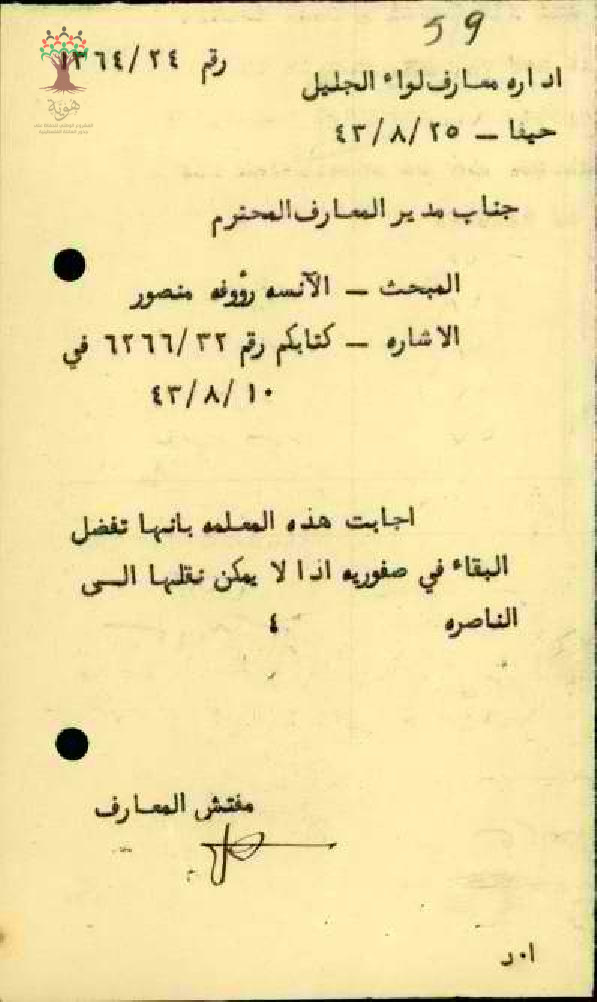 59
رقم ١٣٦٤/٢٤
هوية
اداره معارف لواء الجليل
حيفا – ٤٣/٨/٢٥
جناب مدير المعارف المحترم
المبحث – الآنسه رؤوفه منصور
الاشاره – كتابكم رقم ٦٢٦٦/٣٢ في
٤٣/٨/١٠
اجابت هذه المعلمه بانها تفضل
البقاء في صفوريه اذا لا يمكن نقلها الى
الناصره ٤
مفتش المعارف
ا٠د